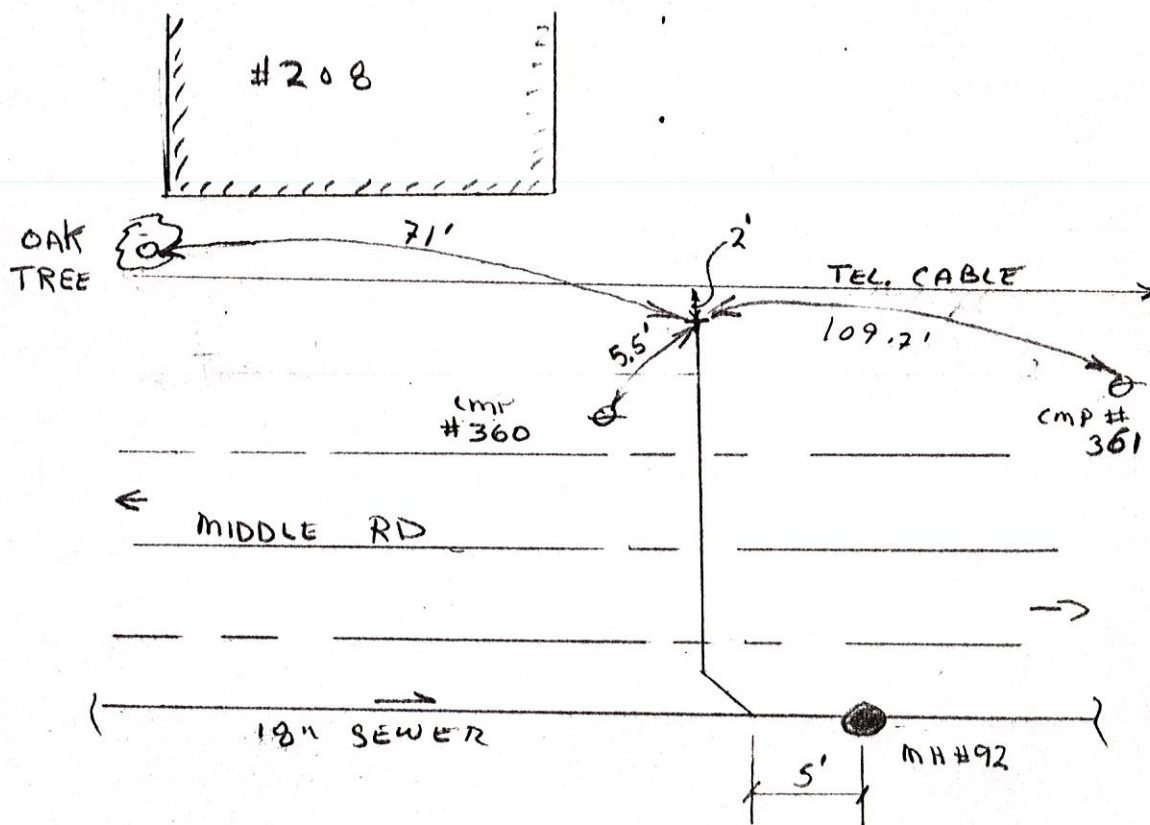 #208
OAK
TREE
71'
2'
TEL. CABLE
109.2'
5.5'
CMP
#360
CMP #
361
MIDDLE RD
18" SEWER
MH #92
5'